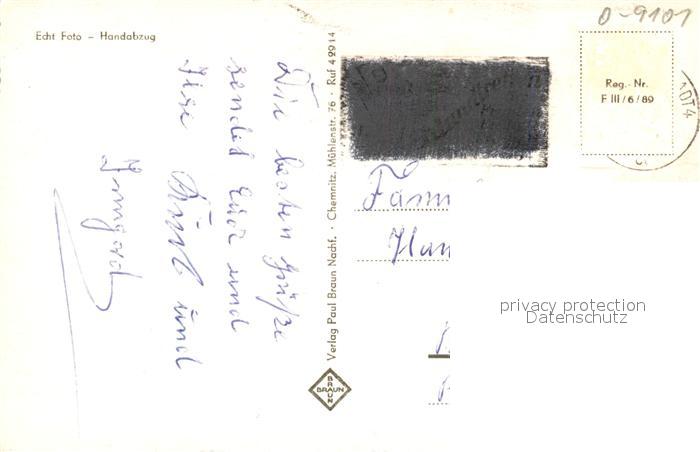 O-9101
Echt Foto – Handabzug
Die besten Grüße
sendet Euch und
Ilse und
Irmgard
Verlag Paul Braun Nachf. · Chemnitz, Mühlenstr. 76 · Ruf 42914
BRAUN
BRAUN
Reg.-Nr.
F III/6/89
Fam
Han
privacy protection
Datenschutz